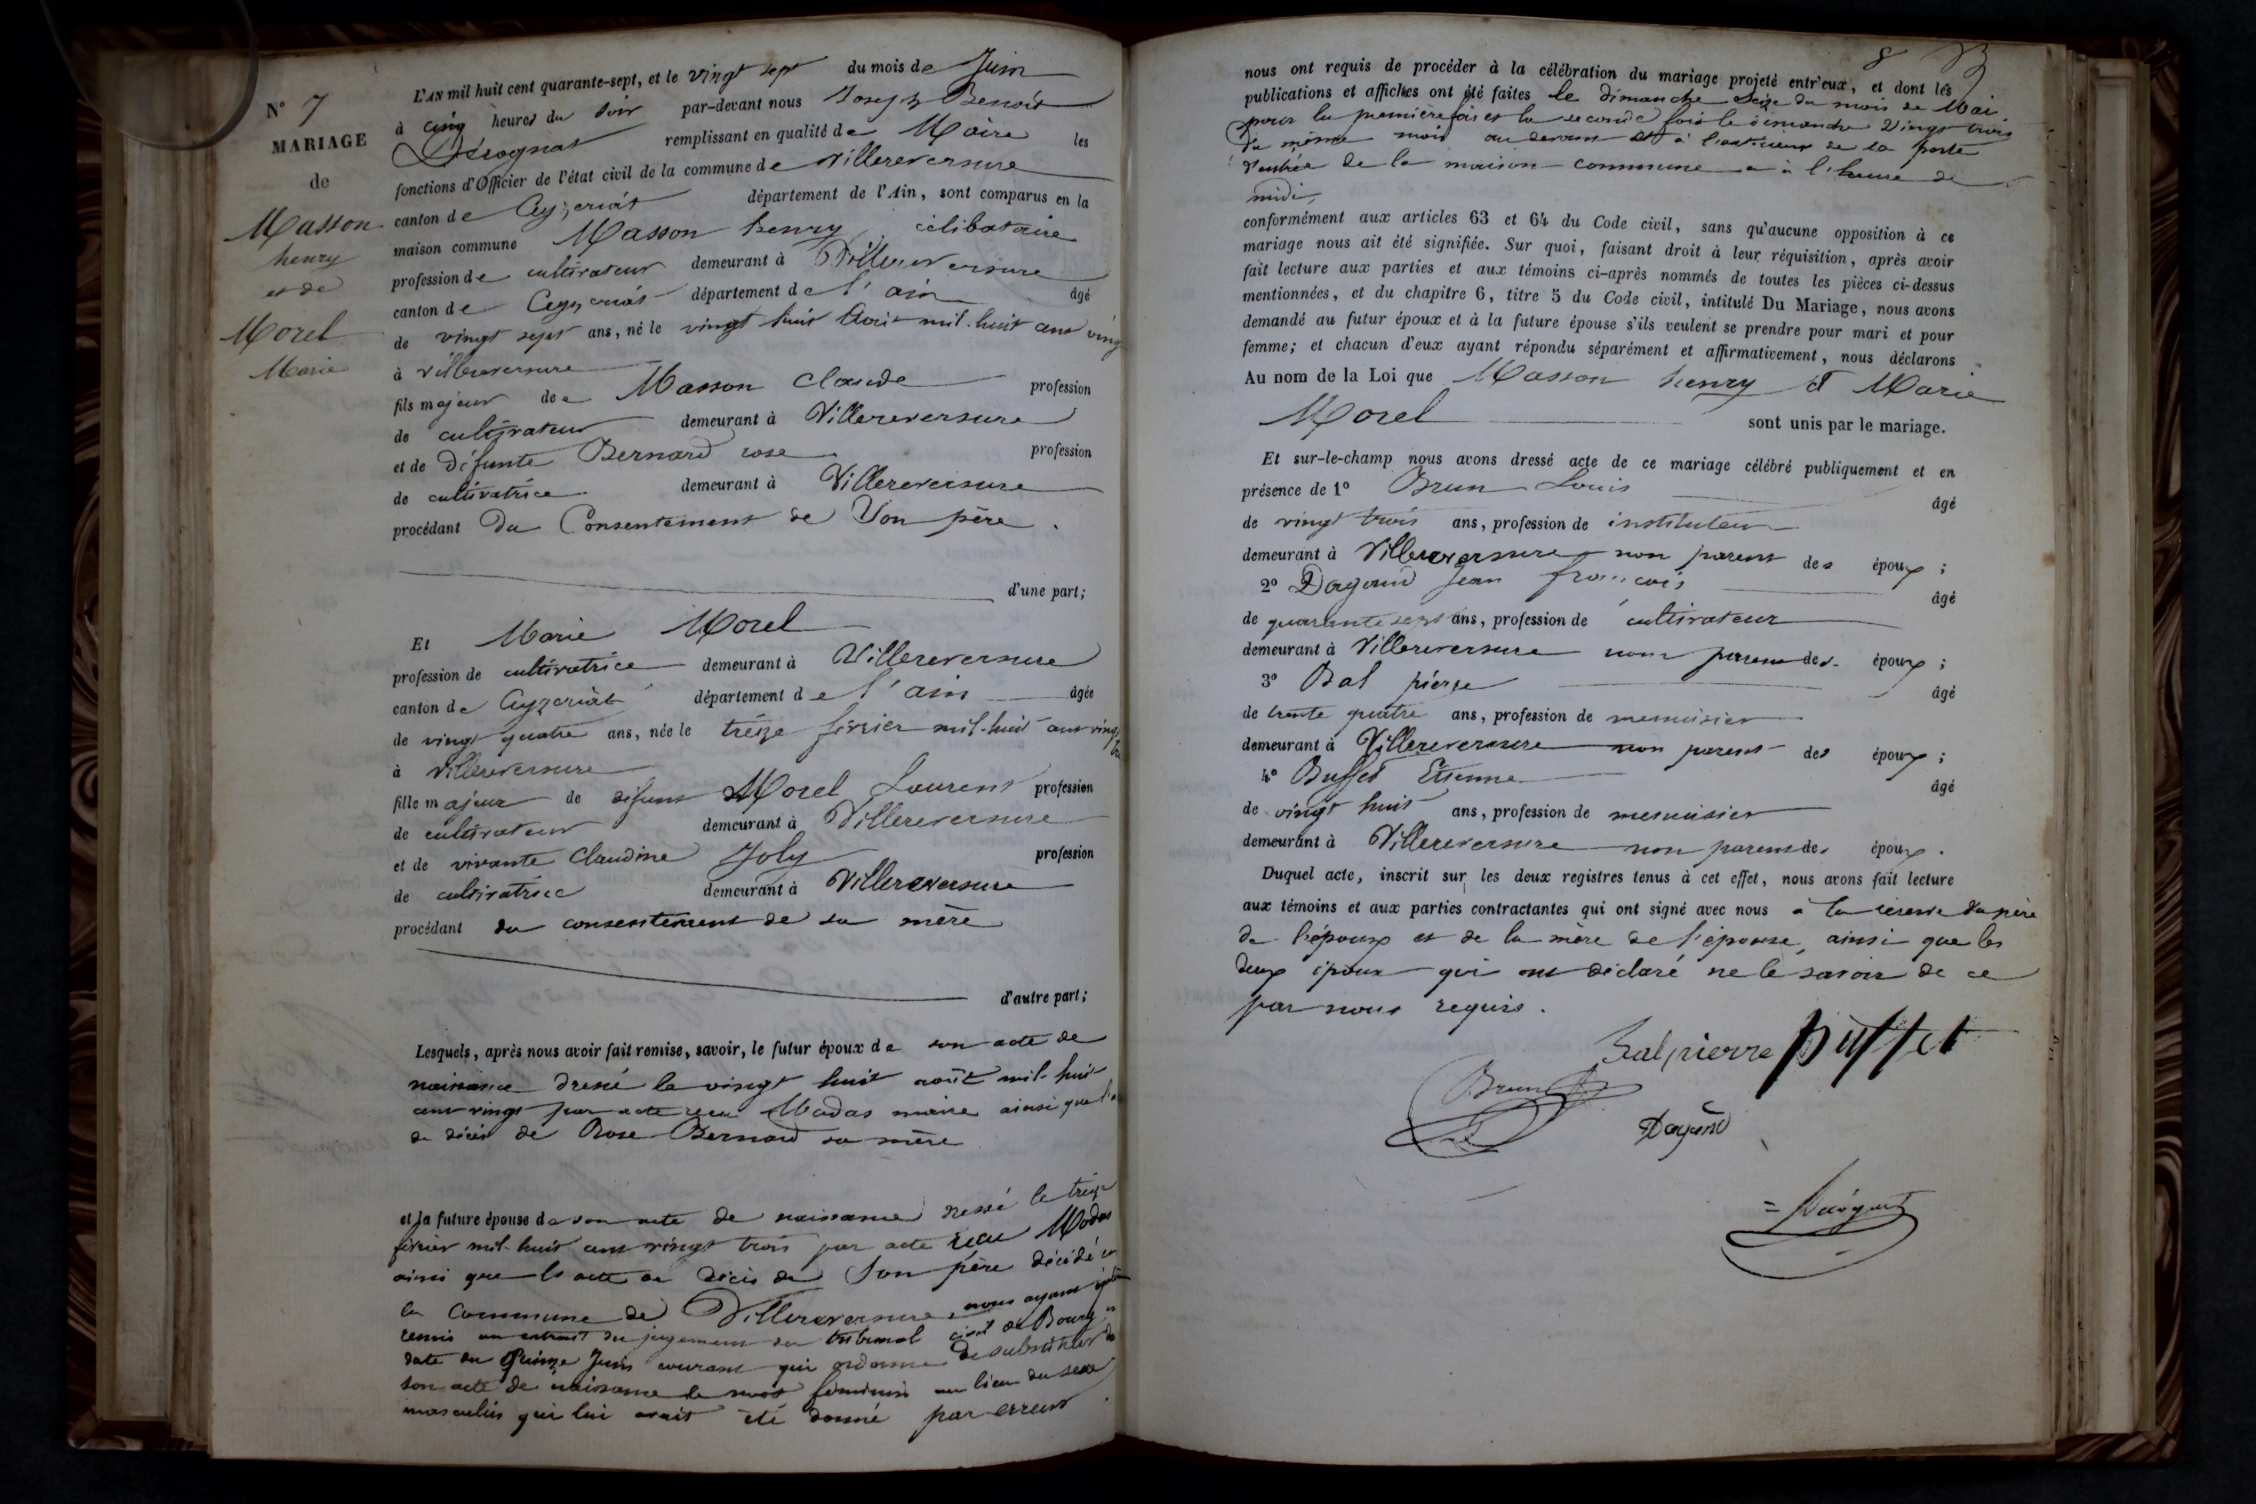 N° 7
MARIAGE
de
Masson
henry
et de
Morel
Marie
L'AN mil huit cent quarante-sept, et le vingt sept du mois de Juin
à cinq heures du soir par-devant nous Joseph Benoit
Dérognat remplissant en qualité de Maire les
fonctions d'Officier de l'état civil de la commune de Villereversure
canton de Ceyzeriat département de l'Ain, sont comparus en la
maison commune Masson henry célibataire
profession de cultivateur demeurant à Villereversure
canton de Ceyzeriat département de l'ain âgé
de vingt sept ans, né le vingt huit Août mil-huit cent vingt
à Villereversure
fils majeur de Masson Claude profession
de cultivateur demeurant à Villereversure
et de défunte Bernard rose profession
de cultivatrice demeurant à Villereversure
procédant Du Consentement de Son père.
d'une part;
Et Marie Morel
profession de cultivatrice demeurant à Villereversure
canton de Ceyzeriat département de l'ain âgée
de vingt quatre ans, née le treize février mil-huit cent vingt
à Villereversure
fille majeur de défunt Morel Laurent profession
de cultivateur demeurant à Villereversure
et de vivante Claudine Joly profession
de cultivatrice demeurant à Villereversure
procédant du consentement de sa mère
d'autre part;
Lesquels, après nous avoir fait remise, savoir, le futur époux de son acte de
naissance dressé le vingt huit août mil-huit
cent vingt par acte recu Modas maire ainsi que
de décès de Rose Bernard sa mère
et la future épouse de son acte de naissance dressé le treize
février mil-huit cent vingt trois par acte recu Modas
ainsi que l'acte de décès de Son père décédé en
la Commune de Villereversure, nous ayant
remis un extrait du jugement du tribunal civil de Bourg en
date du Quinze Juin courant qui ordonne de substituer
son acte de naissance le mot féminin au lieu du sexe
masculin qui lui avait été donné par erreur.
8
nous ont requis de procéder à la célébration du mariage projeté entr'eux, et dont les
publications et affiches ont été faites le dimanche Seize du mois de Mai
pour la première fois et la seconde fois le dimanche vingt trois
du même mois au devant et à l'extérieur de la porte
d'entrée de la maison commune à l'heure de
midi,
conformément aux articles 63 et 64 du Code civil, sans qu'aucune opposition à ce
mariage nous ait été signifiée. Sur quoi, faisant droit à leur réquisition, après avoir
fait lecture aux parties et aux témoins ci-après nommés de toutes les pièces ci-dessus
mentionnées, et du chapitre 6, titre 5 du Code civil, intitulé Du Mariage, nous avons
demandé au futur époux et à la future épouse s'ils veulent se prendre pour mari et pour
femme; et chacun d'eux ayant répondu séparément et affirmativement, nous déclarons
Au nom de la Loi que Masson henry et Marie
Morel sont unis par le mariage.
Et sur-le-champ nous avons dressé acte de ce mariage célébré publiquement et en
présence de 1° Brun Louis âgé
de vingt trois ans, profession de instituteur
demeurant à Villereversure non parent des époux;
2° Dagand Jean françois âgé
de quarante sept ans, profession de cultivateur
demeurant à Villereversure non parent des époux;
3° Bal pierre âgé
de trente quatre ans, profession de menuisier
demeurant à Villereversure non parent des époux;
4° Buffet Etienne âgé
de vingt huit ans, profession de menuisier
demeurant à Villereversure non parent des époux.
Duquel acte, inscrit sur les deux registres tenus à cet effet, nous avons fait lecture
aux témoins et aux parties contractantes qui ont signé avec nous à la réserve du père
de l'époux et de la mère de l'épouse, ainsi que les
deux époux qui ont déclaré ne le savoir de ce
par nous requis.
Bal pierre Buffet
Brun
Dagand
Dérognat